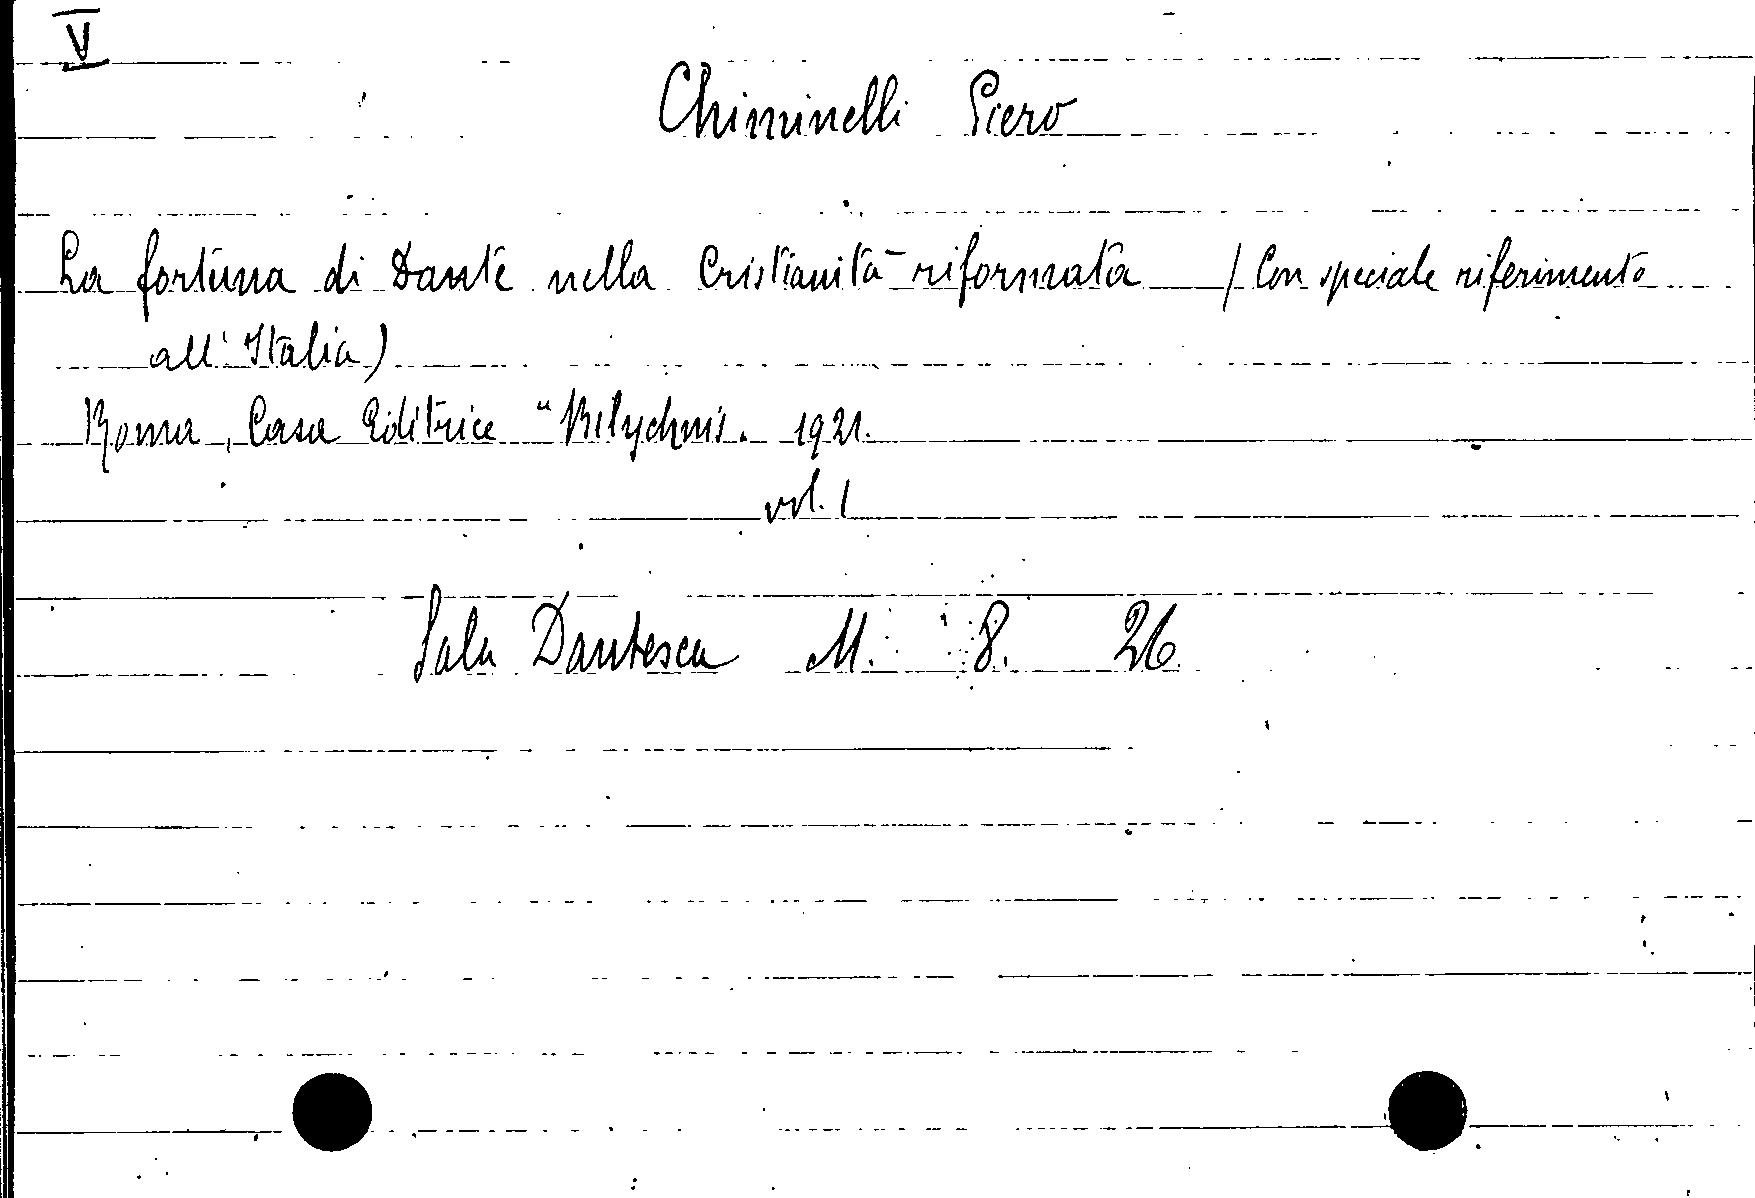 V
Chiminelli Piero
La fortuna di Dante nella Cristianità riformata (Con speciale riferimento
all'Italia)
Roma, Casa Editrice "Bilychnis. 1921.
vol. 1
Sala Dantesca M. 8. 26